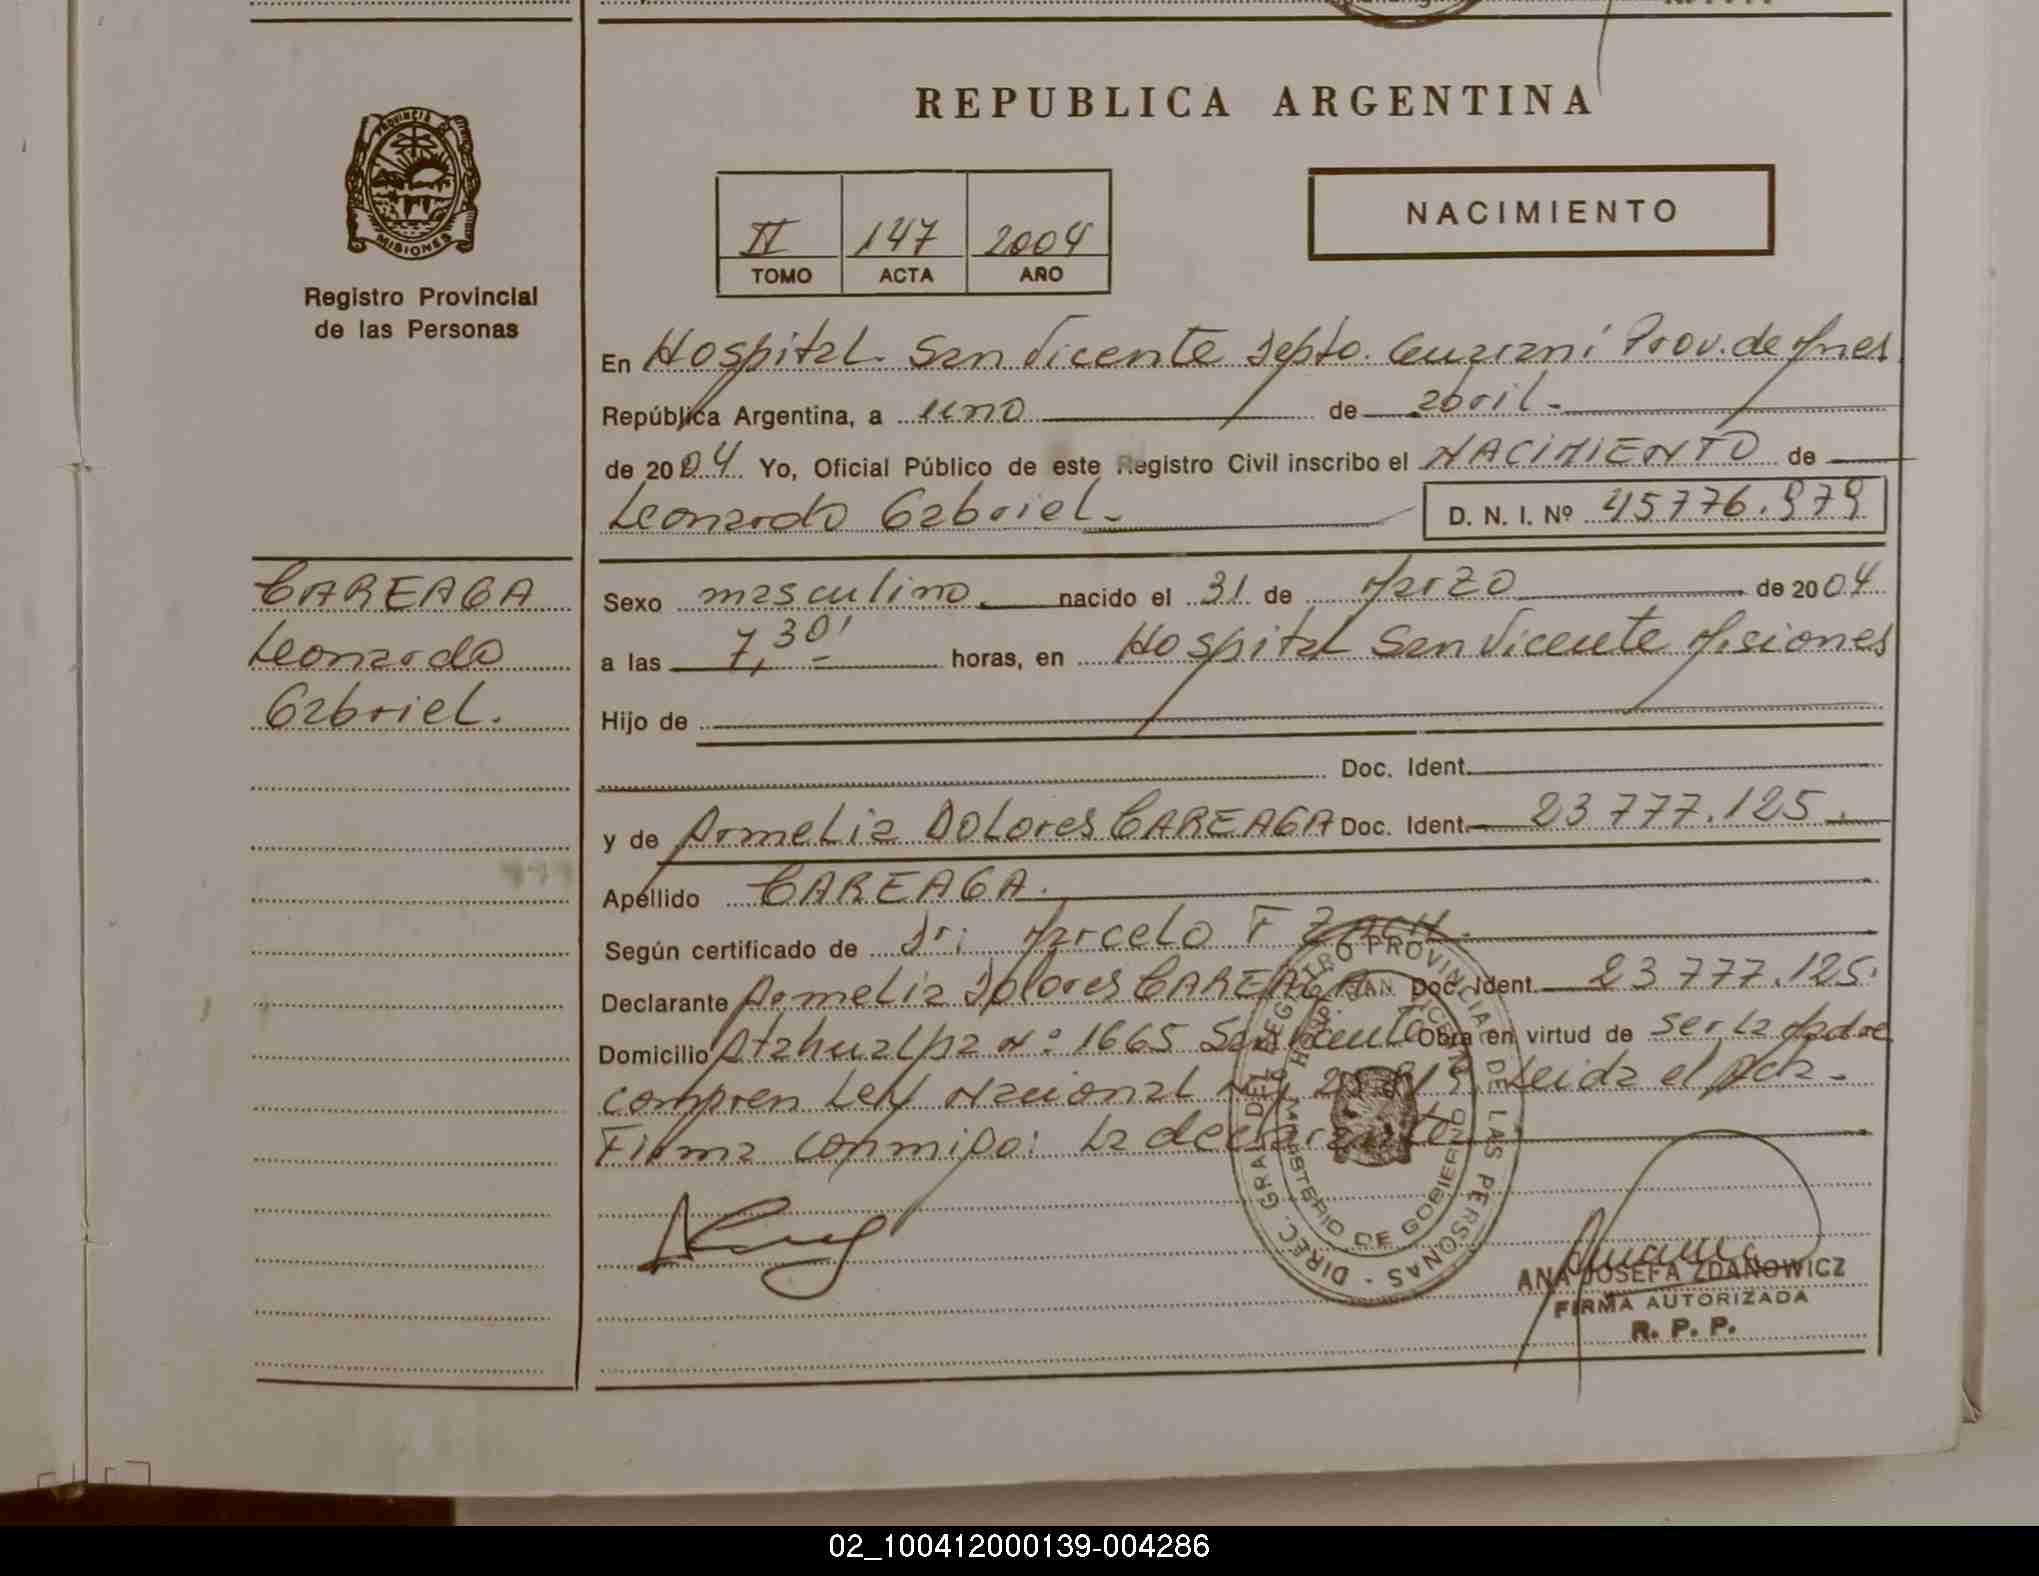 REPUBLICA ARGENTINA
PROVINCIA DE
MISIONES
Registro Provincial
de las Personas
II 147 2004
TOMO ACTA AÑO
NACIMIENTO
En Hospital San Vicente Depto. Guaraní Prov. de Mnes
República Argentina, a uno de abril
de 2004 Yo, Oficial Público de este Registro Civil inscribo el NACIMIENTO de
Leonardo Gabriel. D. N. I. Nº 45776.979
CAREAGA
Leonardo
Gabriel.
Sexo masculino. nacido el 31 de Marzo de 2004
a las 7,30' horas, en Hospital San Vicente Misiones
Hijo de
Doc. Ident.
y de Armelia Dolores CAREAGA Doc. Ident. 23 777.125.
Apellido CAREAGA.
Según certificado de Dr: Marcelo F ZACH.
Declarante Armelia Dolores CAREAGA Doc. Ident. 23 777.125.
Domicilio Atahualpa Nº 1665 San Vicente Obra en virtud de ser la Madre
compren Ley Nacional Leida el Acta-
Firma conmigo: la declarante
DIREC. GRAL DEL REGISTRO PROVINCIAL DE LAS PERSONAS -
MINISTERIO DE GOBIERNO
ANA JOSEFA ZDANOWICZ
FIRMA AUTORIZADA
R. P. P.
02_100412000139-004286